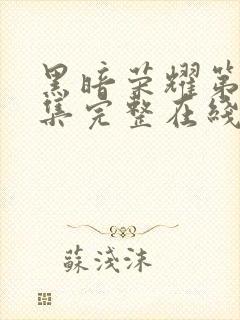 黑暗荣耀第
集完整在线
蘇淺沫